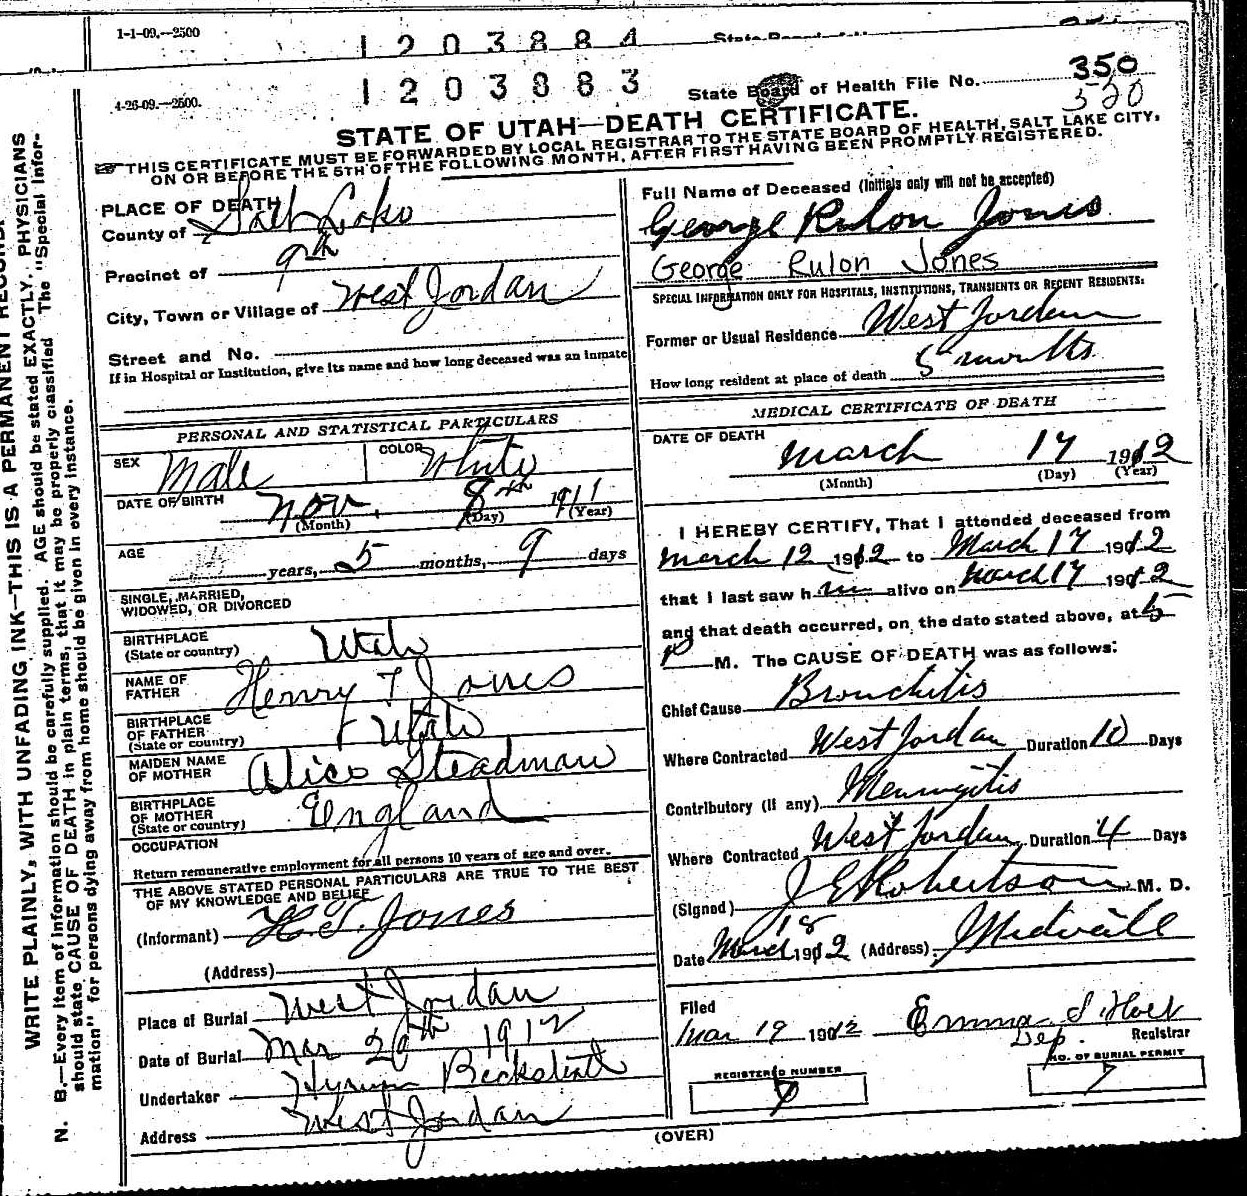 1-1-09.—2500
1203884
4-26-09.—2500.
1203883
State Board of Health File No. 350
520
STATE OF UTAH—DEATH CERTIFICATE.
THIS CERTIFICATE MUST BE FORWARDED BY LOCAL REGISTRAR TO THE STATE BOARD OF HEALTH, SALT LAKE CITY,
ON OR BEFORE THE 5TH OF THE FOLLOWING MONTH, AFTER FIRST HAVING BEEN PROMPTLY REGISTERED.
WRITE PLAINLY, WITH UNFADING INK—THIS IS A PERMANENT RECORD.
N. B.—Every item of information should be carefully supplied. AGE should be stated EXACTLY. PHYSICIANS
should state CAUSE OF DEATH in plain terms, that it may be properly classified The "Special Infor-
mation" for persons dying away from home should be given in every instance.
PLACE OF DEATH
County of Salt Lake
Precinct of 9th
City, Town or Village of West Jordan
Street and No.
If in Hospital or Institution, give its name and how long deceased was an inmate
PERSONAL AND STATISTICAL PARTICULARS
SEX Male COLOR White
DATE OF BIRTH Nov. 8th 1911
(Month) (Day) (Year)
AGE years, 5 months, 9 days
SINGLE, MARRIED,
WIDOWED, OR DIVORCED
BIRTHPLACE
(State or country) Utah
NAME OF
FATHER Henry T Jones
BIRTHPLACE
OF FATHER
(State or country) Utah
MAIDEN NAME
OF MOTHER Alice Steadman
BIRTHPLACE
OF MOTHER
(State or country) England
OCCUPATION
Return remunerative employment for all persons 10 years of age and over.
THE ABOVE STATED PERSONAL PARTICULARS ARE TRUE TO THE BEST
OF MY KNOWLEDGE AND BELIEF
(Informant) H. T. Jones
(Address)
Place of Burial West Jordan
Date of Burial Mar 20th 1912
Undertaker Hyrum Beckstead
Address West Jordan
Full Name of Deceased (Initials only will not be accepted)
George Rulon Jones
George Rulon Jones
SPECIAL INFORMATION ONLY FOR HOSPITALS, INSTITUTIONS, TRANSIENTS OR RECENT RESIDENTS:
Former or Usual Residence West Jordan
How long resident at place of death 5 months
MEDICAL CERTIFICATE OF DEATH
DATE OF DEATH
March 17 1912
(Month) (Day) (Year)
I HEREBY CERTIFY, That I attended deceased from
March 12 1912 to March 17 1912
that I last saw him alive on March 17 1912
and that death occurred, on the date stated above, at 5
P M. The CAUSE OF DEATH was as follows:
Chief Cause Bronchitis
Where Contracted West Jordan Duration 10 Days
Contributory (if any) Meningitis
Where Contracted West Jordan Duration 4 Days
(Signed) J E Robertson M. D.
Date March 18 1912 (Address) Midvale
Filed
Mar 19 1912 Emma S Holt
Dep. Registrar
REGISTERED NUMBER
NO. OF BURIAL PERMIT
7
(OVER)